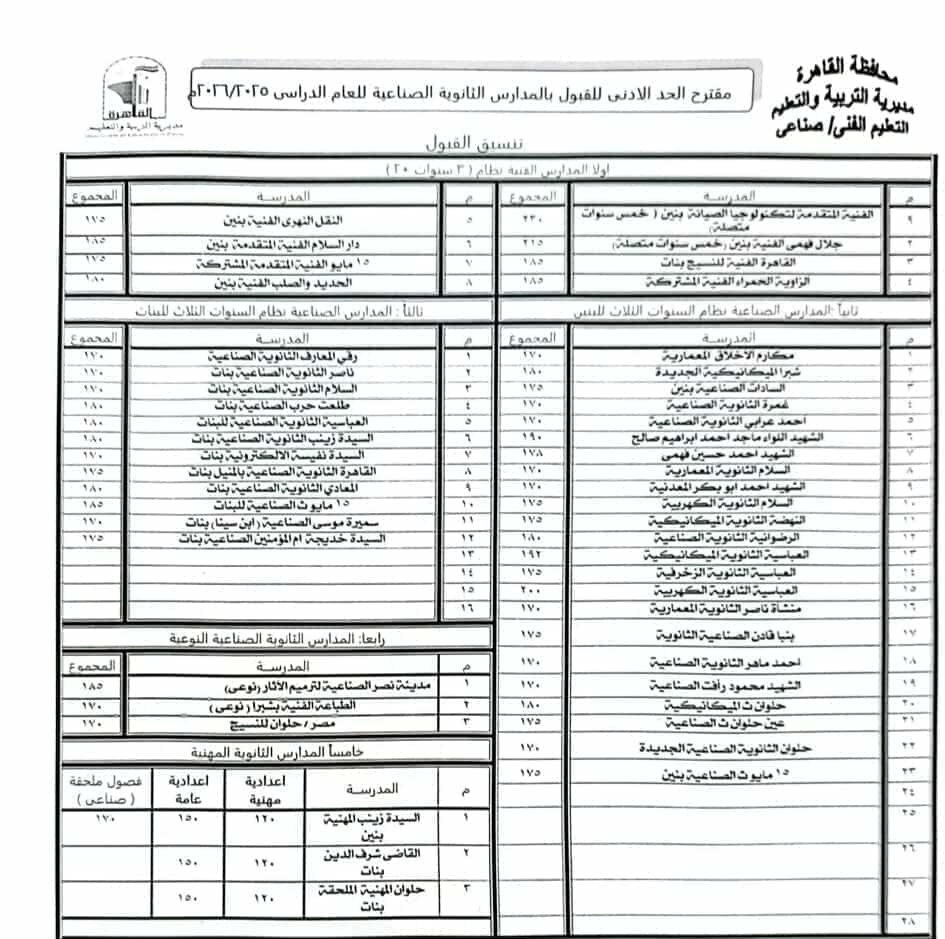 محافظة القاهرة
مديرية التربية والتعليم
التعليم الفنى/ صناعى
مقترح الحد الادنى للقبول بالمدارس الثانوية الصناعية للعام الدراسى ٢٠٢٦/٢٠٢٥م
القاهرة
مديرية التربية والتعليم
تنسيق القبول
اولا المدارس الفنية نظام ( ٣ سنوات ٢٠ )
م المدرسة المجموع
٩ الفنية المتقدمة لتكنولوجيا الصيانة بنين ( خمس سنوات متصلة) ٢٣٠
٢ جلال فهمى الفنية بنين (خمس سنوات متصلة) ٢١٥
٣ القاهرة الفنية للنسيج بنات ١٨٥
٤ الزاوية الحمراء الفنية المشتركة ١٨٥
م المدرسة المجموع
٥ النقل النهرى الفنية بنين ١٧٥
٦ دار السلام الفنية المتقدمة بنين ١٨٥
٧ ١٥ مايو الفنية المتقدمة المشتركة ١٧٥
٨ الحديد والصلب الفنية بنين ١٨٠
ثانياً :المدارس الصناعية نظام السنوات الثلاث للبنين
م المدرسة المجموع
١ مكارم الاخلاق المعمارية ١٧٠
٢ شبرا الميكانيكية الجديدة ١٨٠
٣ السادات الصناعية بنين ١٧٥
٤ غمرة الثانوية الصناعية ١٧٠
٥ احمد عرابي الثانوية الصناعية ١٧٠
٦ الشهيد اللواء ماجد احمد ابراهيم صالح ١٩٠
٧ الشهيد احمد حسين فهمى ١٧٨
٨ السلام الثانوية المعمارية ١٧٠
٩ الشهيد احمد ابو بكر المعدنية ١٧٠
١٠ السلام الثانوية الكهربية ١٧٥
١١ النهضة الثانوية الميكانيكية ١٧٥
١٢ الرضوانية الثانوية الصناعية ١٨٠
١٣ العباسية الثانوية الميكانيكية ١٩٢
١٤ العباسية الثانوية الزخرفية ١٧٥
١٥ العباسية الثانوية الكهربية ٢٠٠
١٦ منشاة ناصر الثانوية المعمارية ١٧٠
١٧ بنبا قادن الصناعية الثانوية ١٧٥
١٨ احمد ماهر الثانوية الصناعية ١٧٠
١٩ الشهيد محمود رأفت الصناعية ١٧٠
٢٠ حلوان ث الميكانيكية ١٨٠
٢١ عين حلوان ث الصناعية ١٧٥
٢٢ حلوان الثانوية الصناعية الجديدة ١٧٠
٢٣ ١٥ مايو ث الصناعية بنين ١٧٥
٢٤
٢٥
٢٦
٢٧
٢٨
ثالثاً : المدارس الصناعية نظام السنوات الثلاث للبنات
م المدرسة المجموع
١ رقي المعارف الثانوية الصناعية ١٧٠
٢ ناصر الثانوية الصناعية بنات ١٧٠
٣ السلام الثانوية الصناعية بنات ١٧٠
٤ طلعت حرب الصناعية بنات ١٨٠
٥ العباسية الثانوية الصناعية للبنات ١٨٠
٦ السيدة زينب الثانوية الصناعية بنات ١٨٠
٧ السيدة نفيسة الالكترونية بنات ١٧٠
٨ القاهرة الثانوية الصناعية بالمنيل بنات ١٧٥
٩ المعادي الثانوية الصناعية بنات ١٨٠
١٠ ١٥ مايو ث الصناعية للبنات ١٨٥
١١ سميرة موسى الصناعية (ابن سينا) بنات ١٧٠
١٢ السيدة خديجة ام المؤمنين الصناعية بنات ١٧٥
١٣
١٤
١٥
١٦
رابعا: المدارس الثانوية الصناعية النوعية
م المدرسة المجموع
١ مدينة نصر الصناعية لترميم الاثار (نوعى) ١٨٥
٢ الطباعة الفنية بشبرا (نوعى) ١٧٠
٣ مصر / حلوان للنسيج ١٧٠
خامساً المدارس الثانوية المهنية
م المدرسة اعدادية مهنية اعدادية عامة فصول ملحقة ( صناعى )
١ السيدة زينب المهنية بنين ١٢٠ ١٥٠ ١٧٠
٢ القاضى شرف الدين بنات ١٢٠ ١٥٠
٣ حلوان المهنية الملحقة بنات ١٢٠ ١٥٠